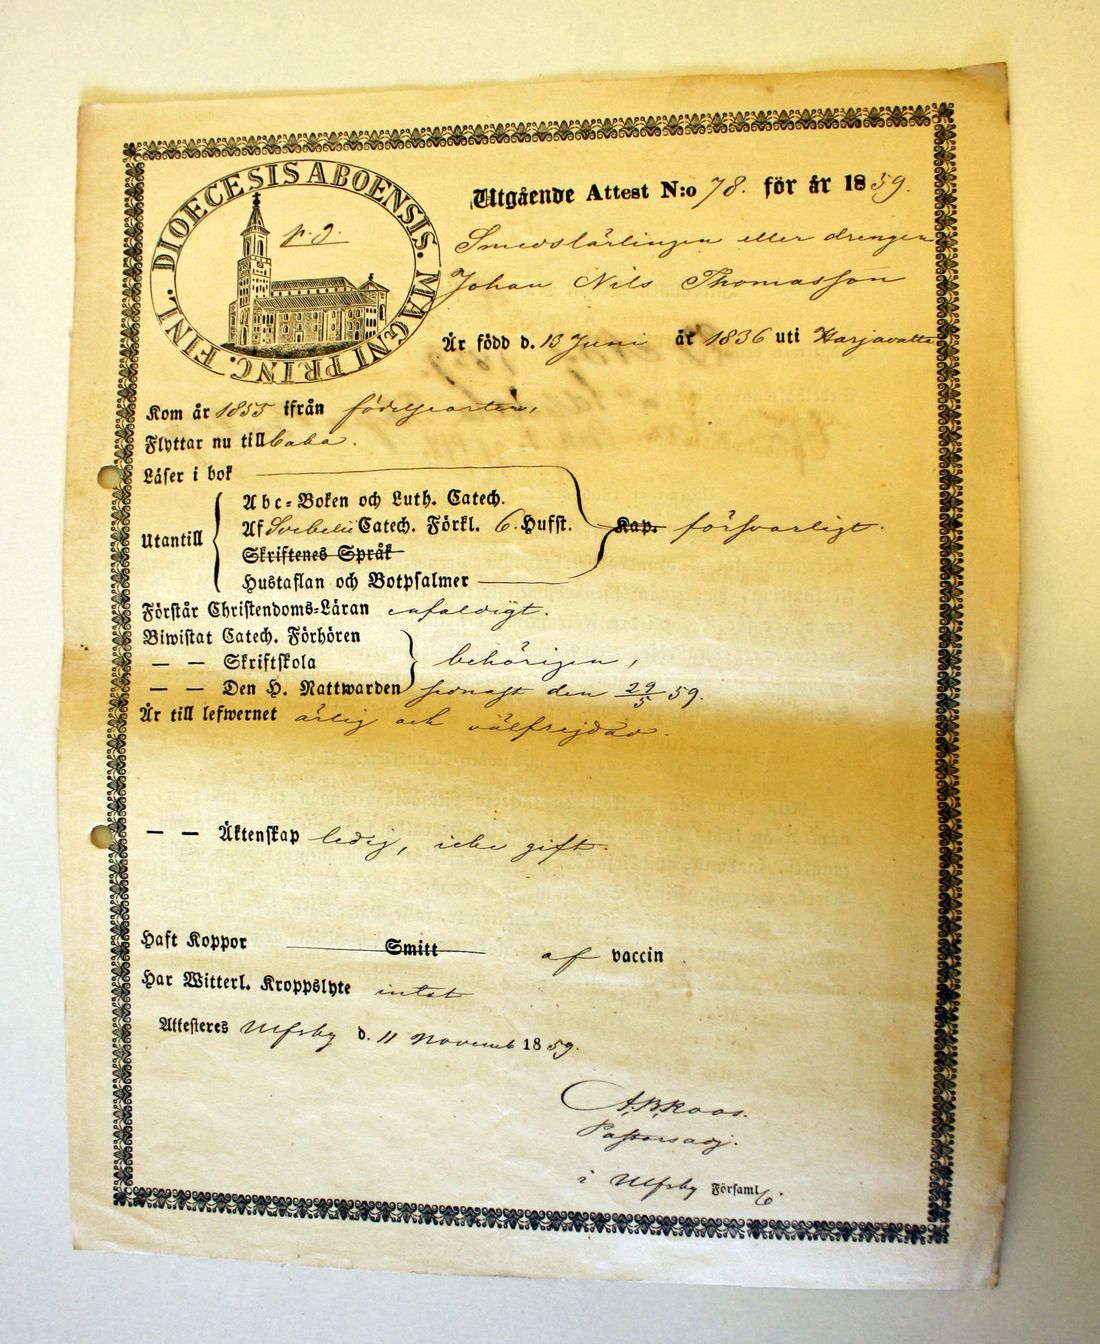 DIOECESIS ABOENSIS. MAGNI PRINC. FINL.
Utgående Attest N:o 78. för år 1859.
Smedslärlingen eller drengen
Johan Nils Thomasson
Är född d. 13 Juni år 1836 uti Harjavalta
Kom år 1855 ifrån födelseorten,
Flyttar nu till
Läser i bok
Utantill
Abc-Boken och Luth. Catech.
Af Svebelii Catech. Förkl. 6. Hufst. Kap. försvarligt.
Skriftenes Språk
Hustaflan och Botpsalmer
Förstår Christendoms-Läran enfaldigt.
Biwistat Catech. Förhören
— — Skriftskola behörigen,
— — Den H. Nattwarden sednast den 29/5 59.
Är till lefwernet ärlig och välfrejdad.
— — Äktenskap ledig, icke gift.
Haft Koppor Smitt af vaccin
Har Witterl. Kroppslyte intet
Attesteres Ulfsby d. 11 Novemb 1859.
Pastorsadj.
i Ulfsby Församl